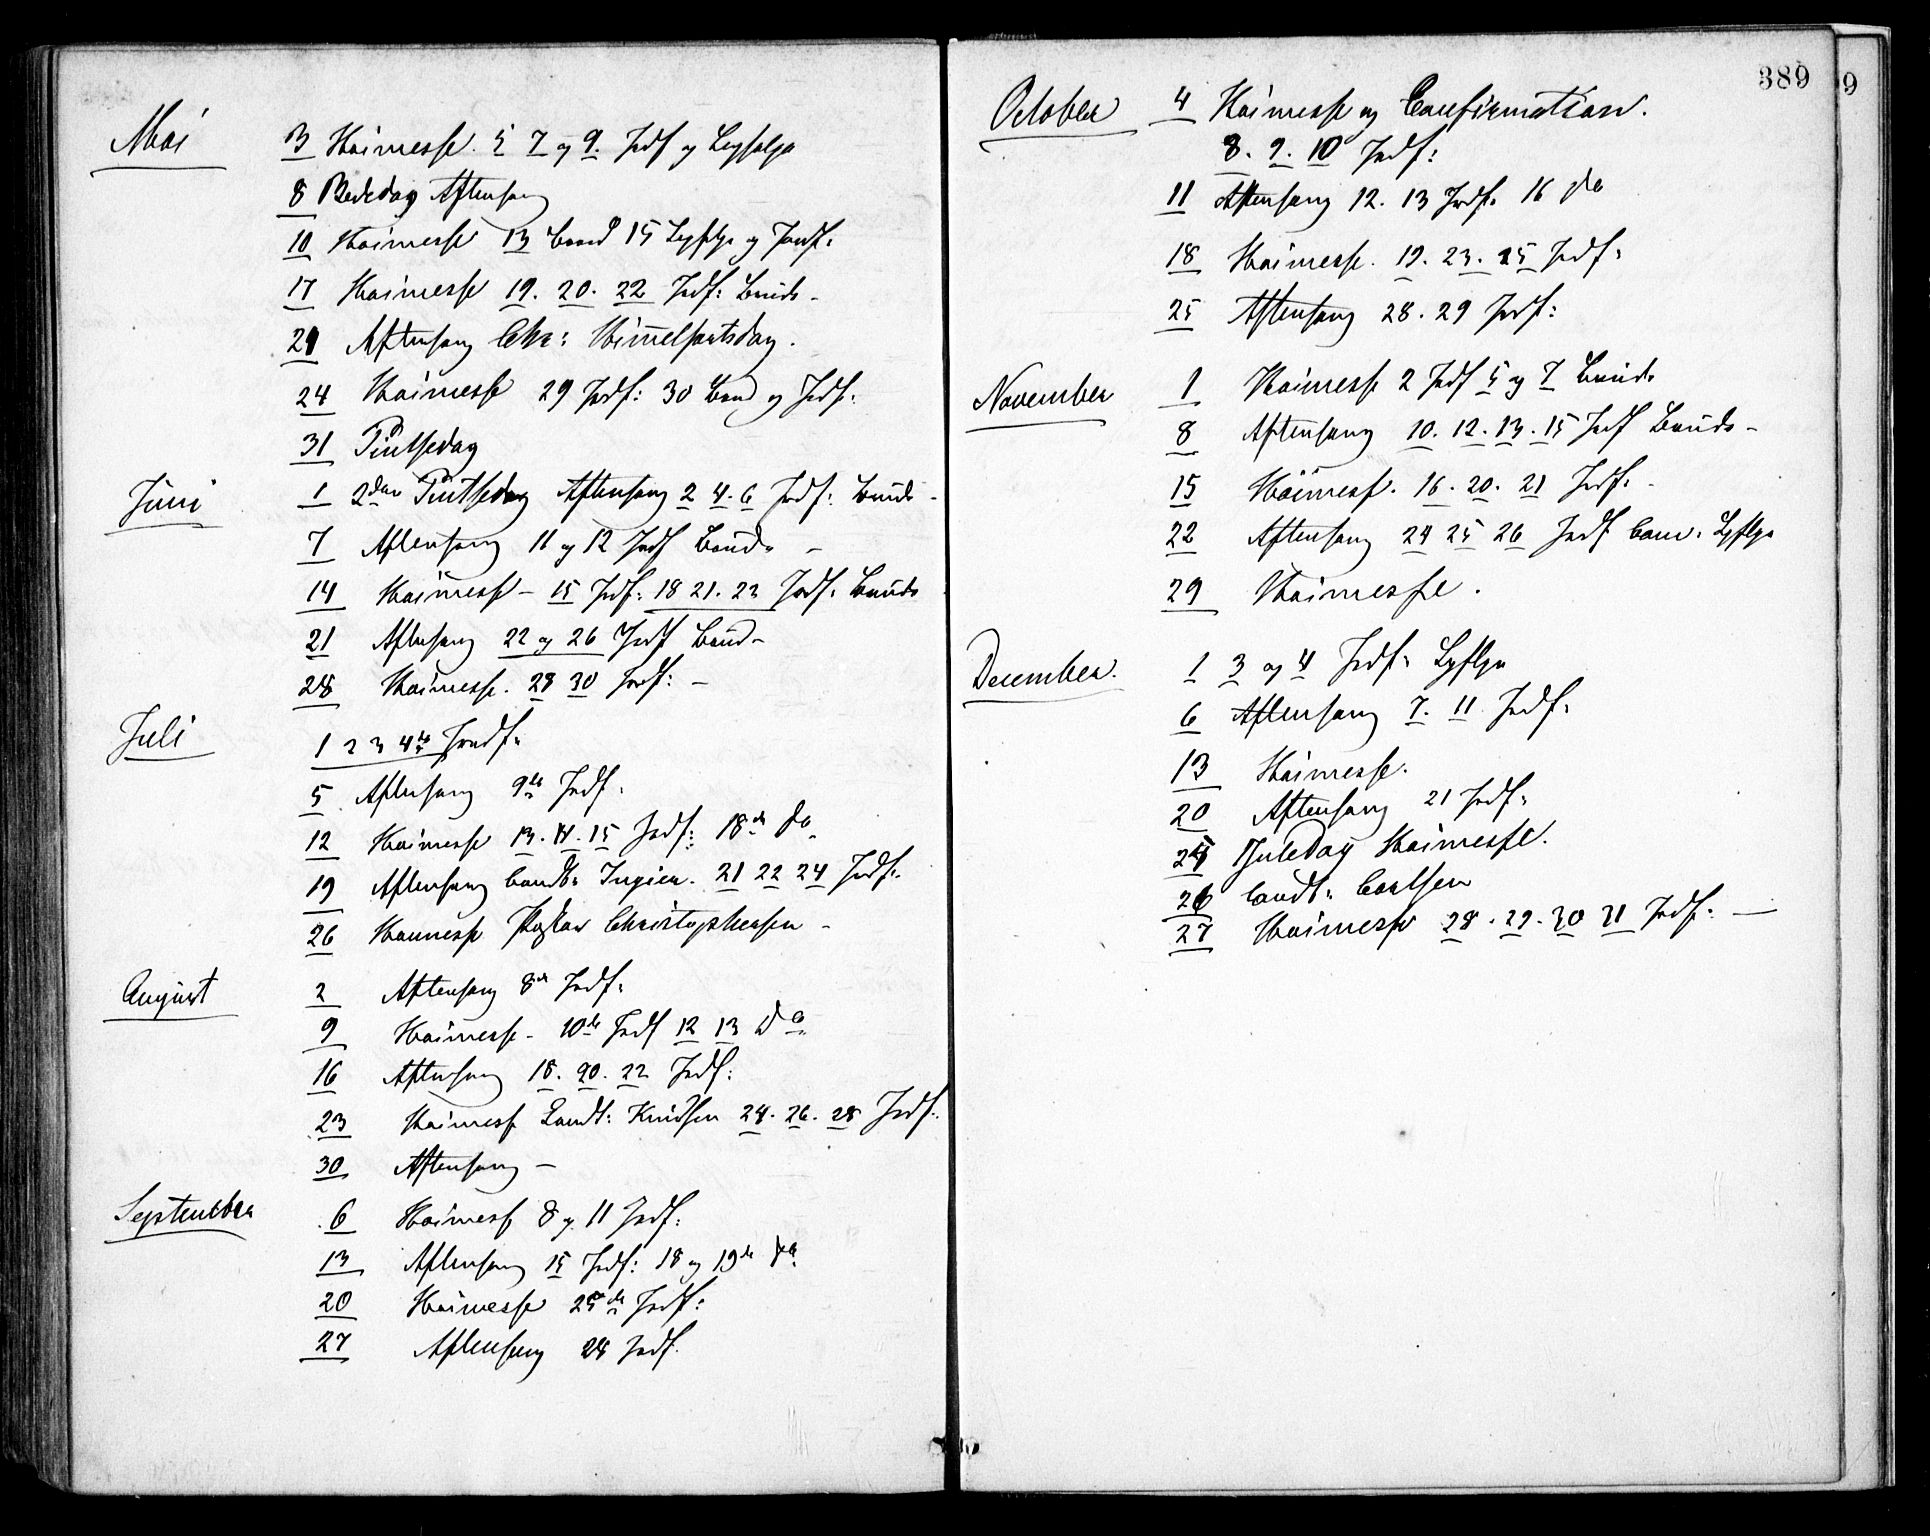 Mai 3 Høimesse. 5 7 og 9. Jrdf og Ligfølge
8 Bededag Aftensang
10 Høimesse 13 15 Ligfølge og Jordf:
17 Høimesse 19. 20. 22 Jrdf:
21 Aftensang Chr: Himmelfartsdag.
24 Høimesse 29 Jrdf: 30 og Jrdf.
31 Pintsedag
Juni 1 2den Pintsedag Aftensang 2 4. 6 Jrdf:
7 Aftensang 11 og 12 Jrdf
14 Høimesse - 15 Jrdf: 18 21. 23 Jrdf.
21 Aftensang 22 og 26 Jrdf
28 Høimesse. 29 30 Jrdf: -
Juli 1 2 3 4de Jordf:
5 Aftensang 9de Jrdf.
12 Høimesse 13. 14. 15 Jrdf: 18de Do
19 Aftensang Candt: Ingier. 21 22 24 Jrdf.
26 Høimesse Pastor Christophersen -
August 2 Aftensang 8de Jrdf:
9 Høimesse - 10de Jrdf 12 13 Do
16 Aftensang 18. 20. 22 Jrdf:
23 Høimesse Candt: Knudsen 24. 26. 28 Jrdf:
30 Aftensang -
September 6 Høimesse 8 og 11 Jrdf:
13 Aftensang 15 Jrdf: 18 og 19de Do
20 Høimesse 25de Jrdf:
27 Aftensang 28 Jrdf.
389
9
October 4 Høimesse og Confirmation.
8. 9. 10 Jrdf:
11 Aftensang 12. 13 Jrdf. 16 Do
18 Høimesse. 19. 23. 25 Jrdf:
25 Aftensang 28. 29 Jrdf:
November 1 Høimesse 2 Jrdf 5 og 7
8 Aftensang 10. 12. 13. 15 Jrdf
15 Høimesse. 16. 20. 21 Jrdf. -
22 Aftensang 24 25 26 Jrdf Ligflge
29 Høimesse.
December. 1 3 og 4 Jrdf: Ligflge
6 Aftensang 7. 11 Jrdf.
13 Høimesse.
20 Aftensang 21 Jrdf:
25 Juledag Høimesse.
26 Candt: Carlsen
27 Høimesse 28. 29. 30 31 Jrdf: -